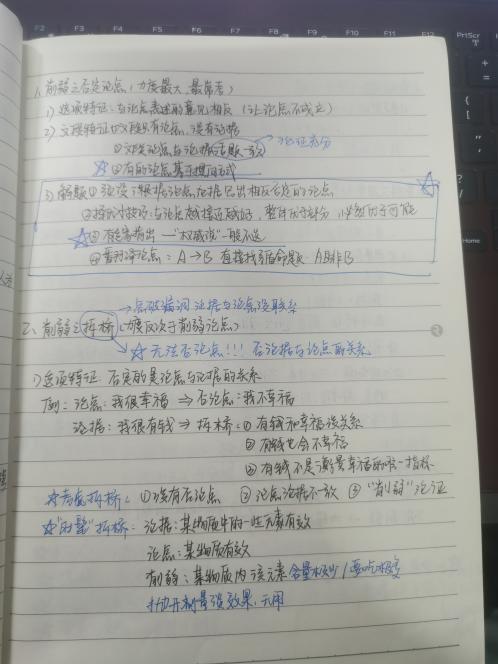 F2 F3 F4 F5 F6 F7 F8 F9 F10 F11 F12 PrtSc
Home
一、削弱之否定论点（力度最大、最常考）
1）选项特征：与论点表述的意见相反（让论点不成立）
2）文段特征 ①文段只有论点，没有论据
②文段论点与论据话题一致 论证充分
☆ ③有的论点基于提问方式
3）解题 ①
②择优技巧：与论点越接近越好，整体优于部分，必然优于可能
☆③有专家指出——"权威说"一般不选
④ 论点：A→B 直接找矛盾命题 A且非B
→否破漏洞 论据与论点没联系
二、削弱之拆桥（力度仅次于削弱论点）
→☆无法否论点!!! 否论据与论点的关系
1）选项特征 否定的是论点与论据的关系
例：论点：我很幸福 ⇒ 否论点：我不幸福
论据：我很有钱 ⇒ 拆桥：①有钱和幸福没关系
②有钱也会不幸福
③有钱不是衡量幸福的唯一指标
☆考虑拆桥：①没有否论点 ②论点论据不一致 ③"削弱"论证
☆"剂量"拆桥：论据：某物质中的一些元素有效
论点：某物质有效
削弱：某物质内该元素含量极少/要吃极多
抛开剂量谈效果，无用